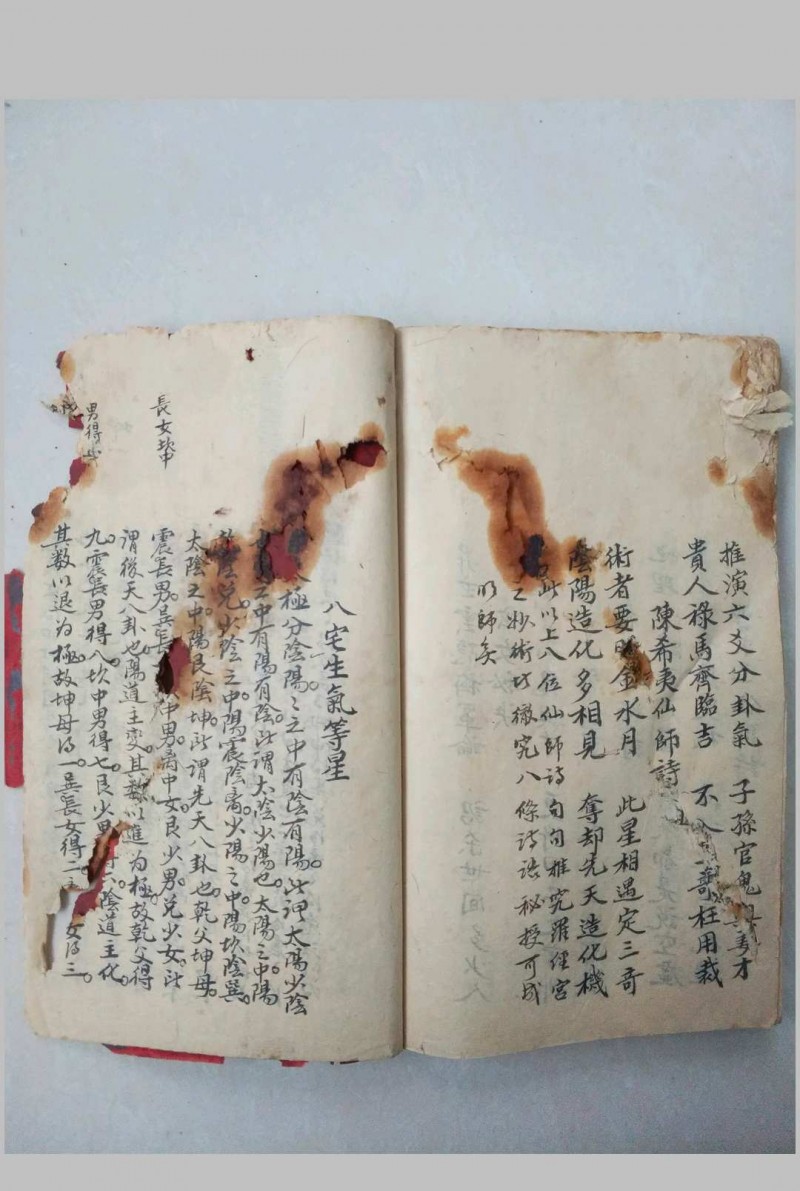 推演六爻分卦氣　子孫官鬼　美才
貴人祿馬齊臨吉　不入　哥枉用裁
陳希夷仙師詩
術者要　金水月　此星相遇定三奇
陰陽造化多相見　奪却先天造化機
此以上八位仙師詩句句推究羅經宮
之妙術功徹究八條詩語秘授可成
明師矣
八宅生氣等星
極分陰陽。〻之中有陰有陽。此謂太陽少陰
之中有陽有陰。此謂太陰少陽也。太陽之中陽
陰兌。少陰之中陽震陰离。少陽之中陽坎陰巽。
太陰之中陽艮陰坤。此謂先天八卦也。乾父坤母。
震長男。巽長　中男。离中女。艮少男。兌少女。此
謂後天八卦也。陽道主變。其数以進為極。故乾父得
九。震長男得八。坎中男得七。艮少男　六。陰道主化。
其数以退為極。故坤母得一。巽長女得二　女得三。
長女坎中
男得